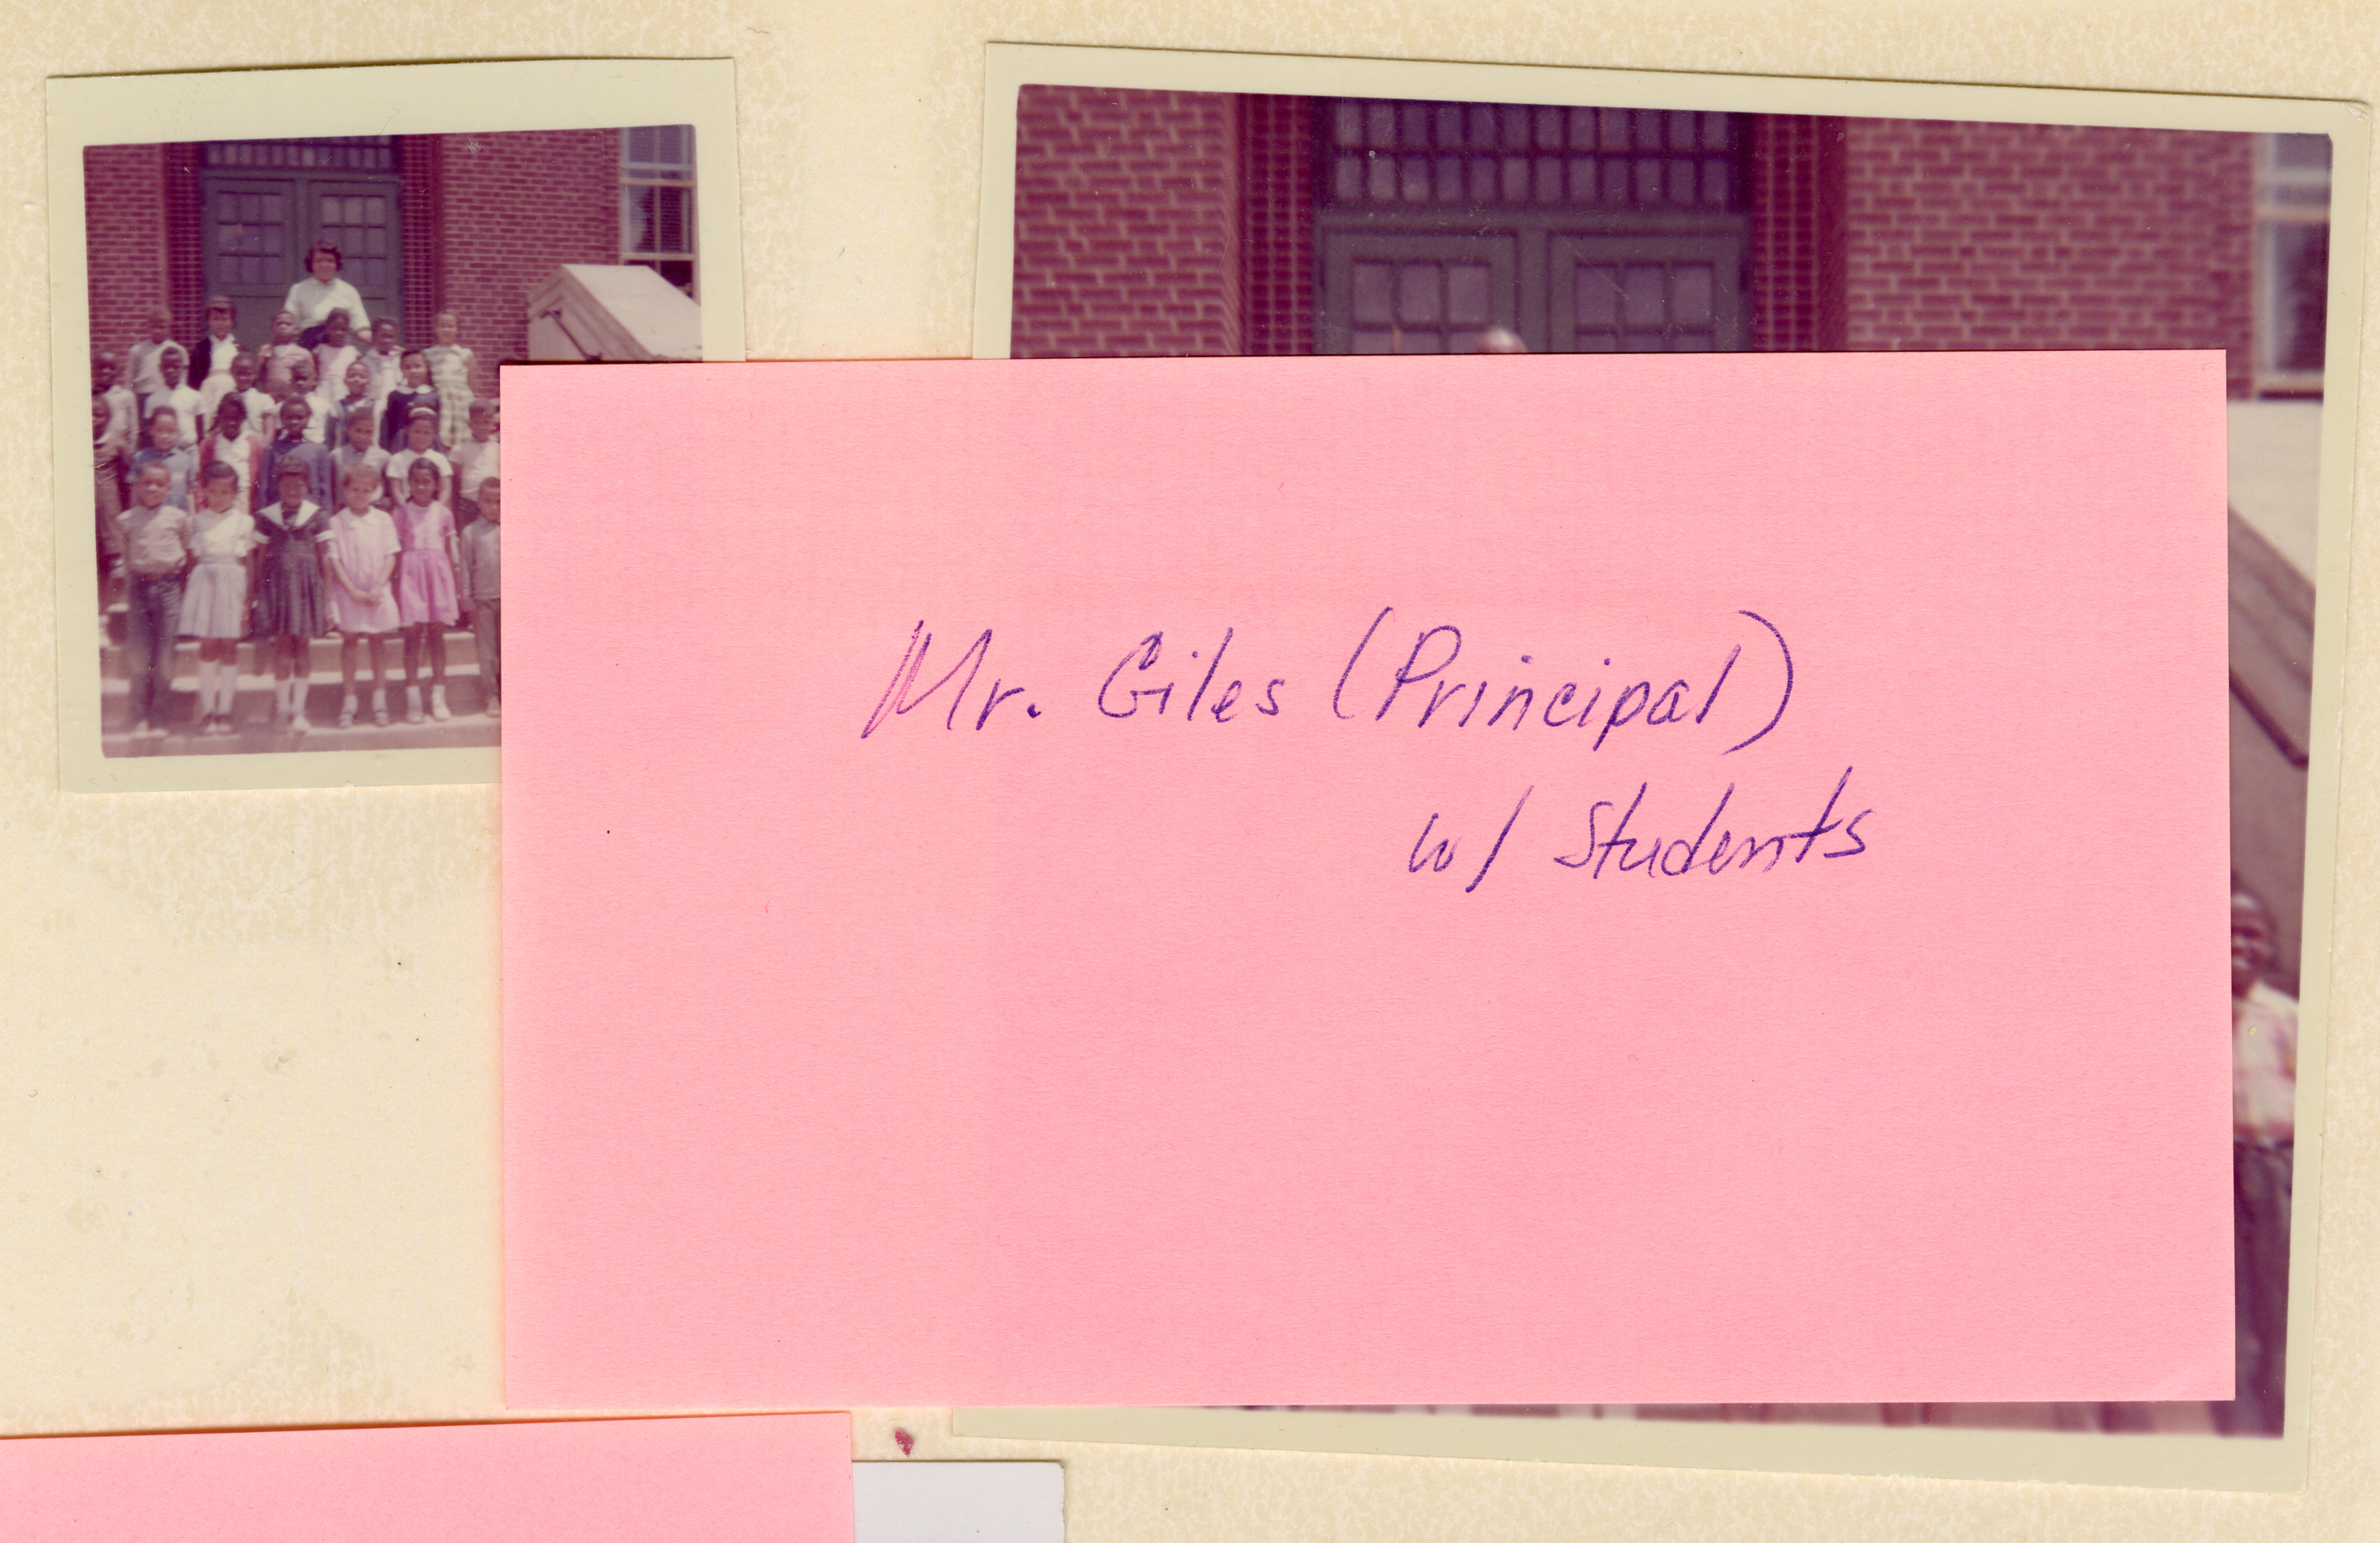 Mr. Giles (Principal)
w/ Students